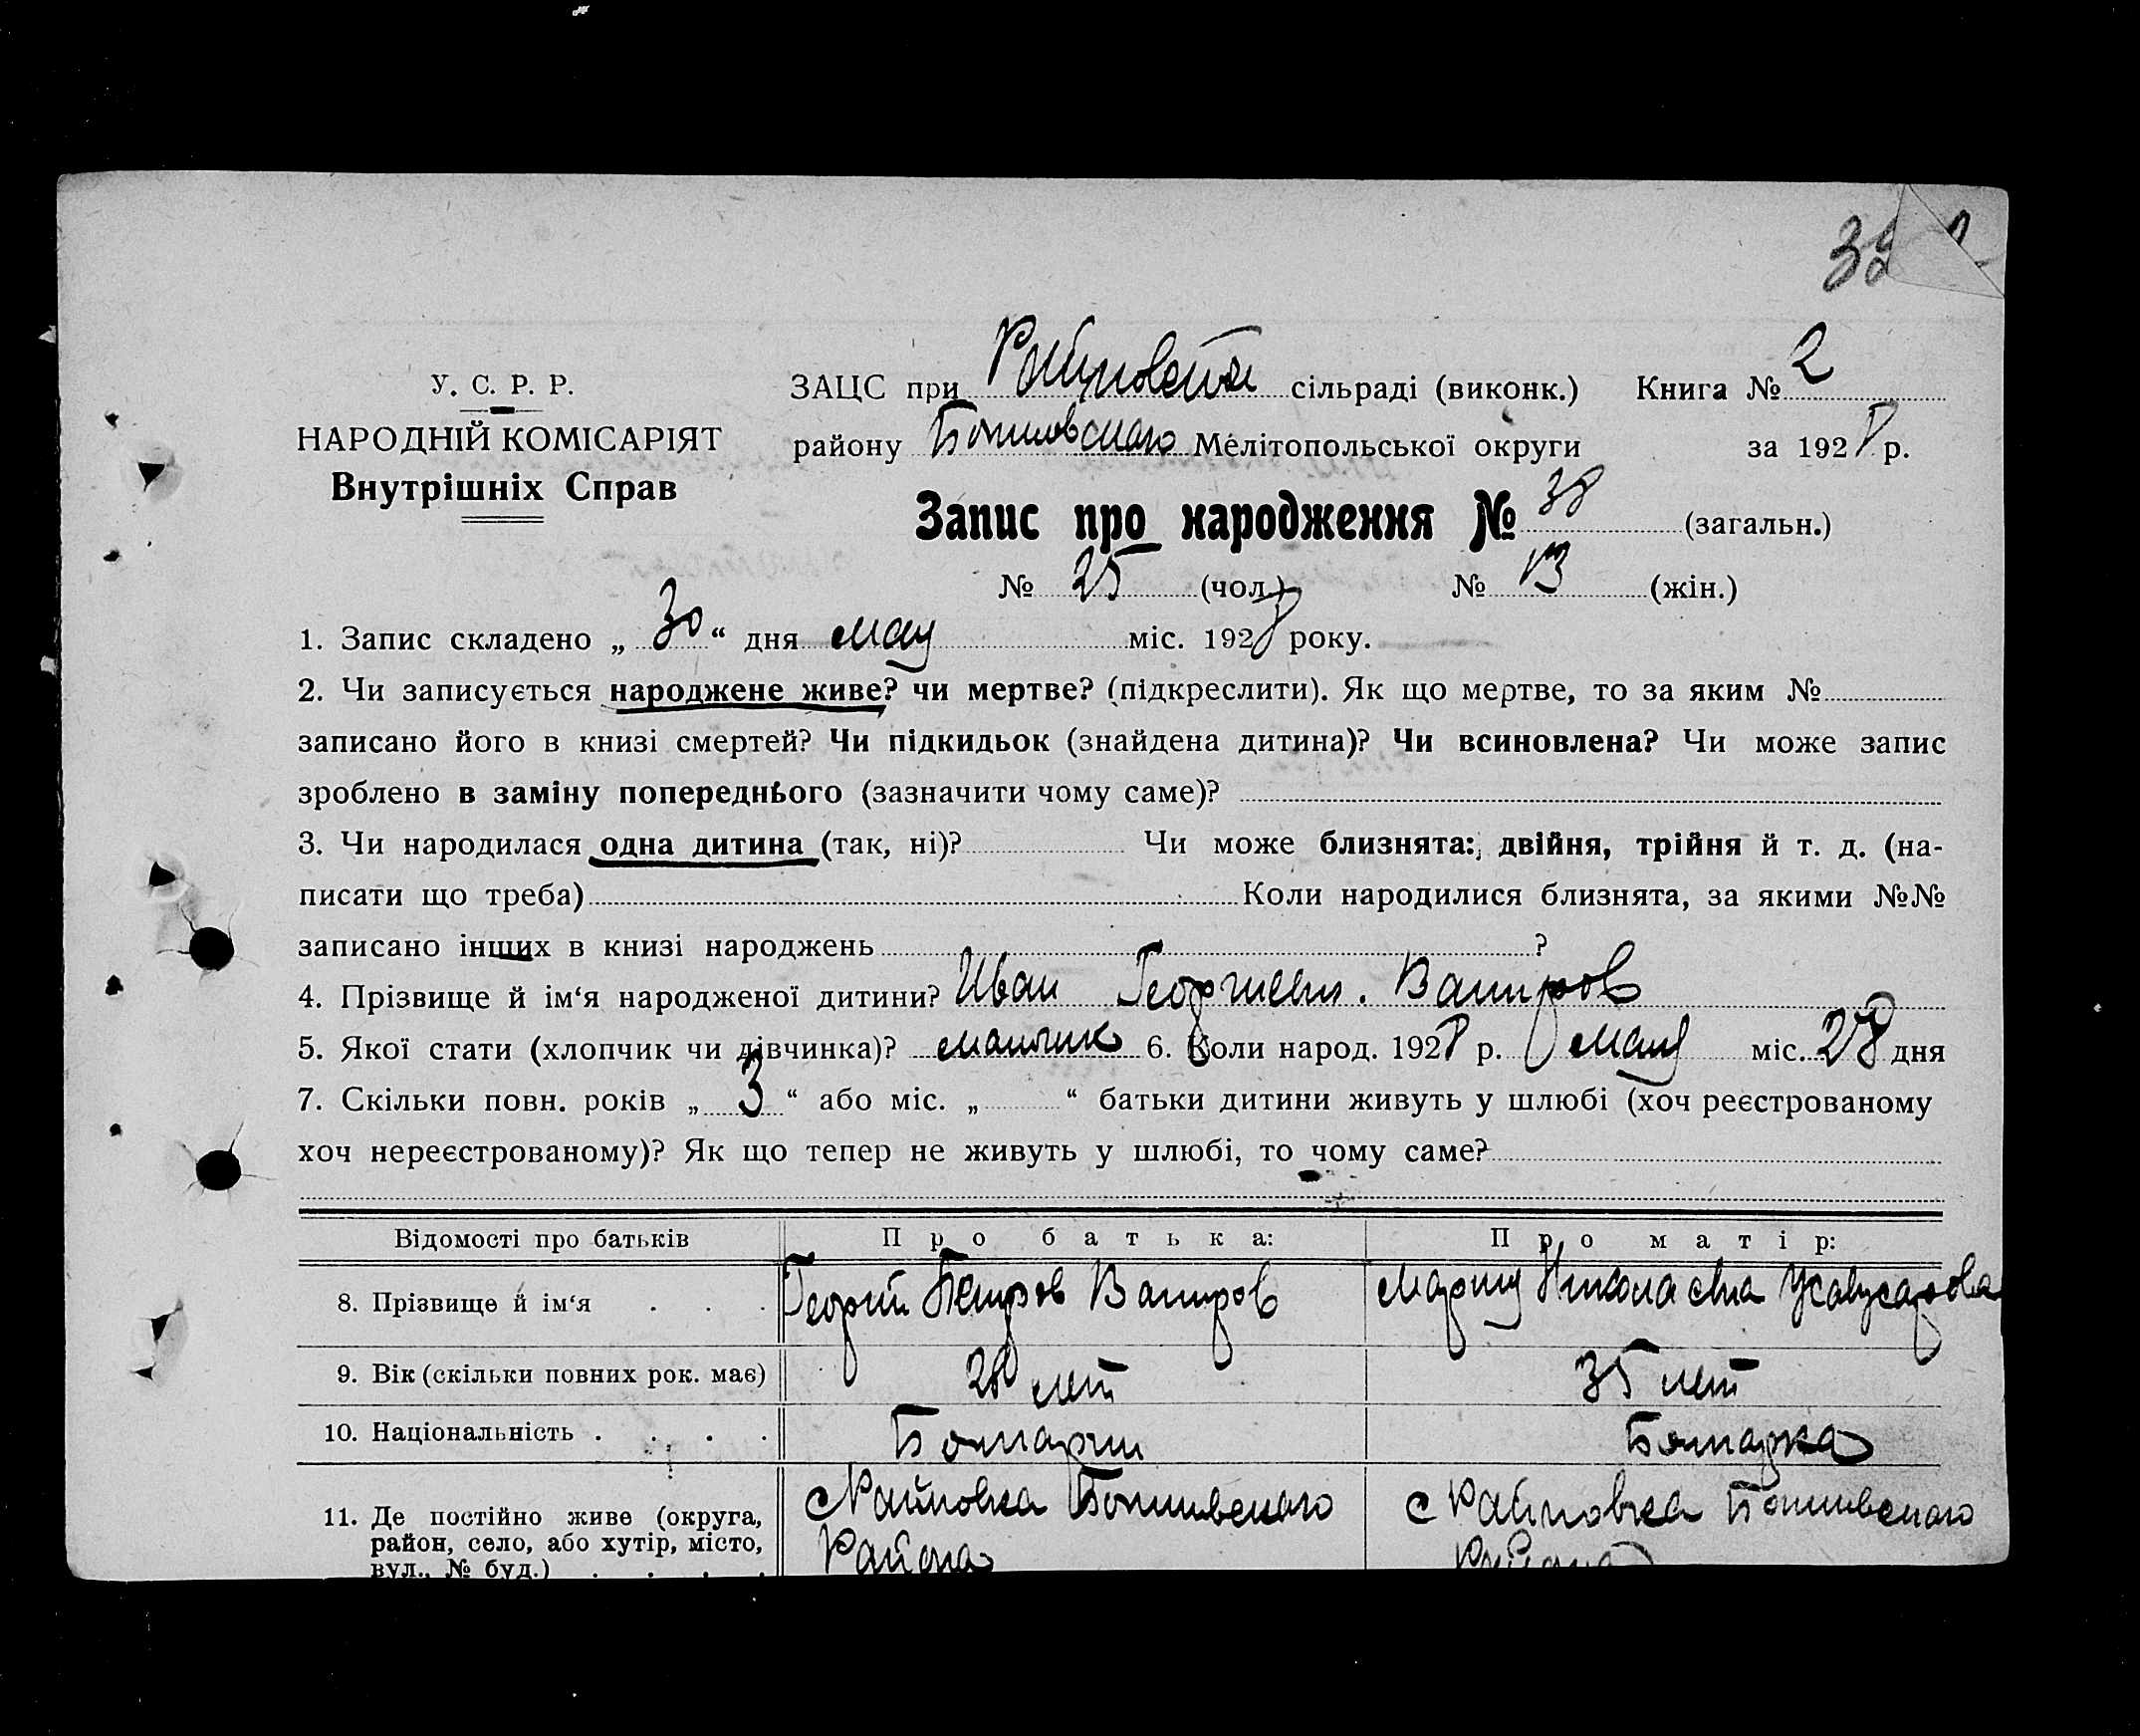 У. С. Р. Р.
НАРОДНІЙ КОМІСАРІЯТ
Внутрішніх Справ
ЗАЦС при сільраді (виконк.) Книга № 2
району Мелітопольської округи за 1928 р.
Запис про народження № 38 (загальн.)
№ 25 (чол.) № 13 (жін.)
1. Запис складено „ 30 “ дня мая міс. 1928 року.
2. Чи записується народжене живе? чи мертве? (підкреслити). Як що мертве, то за яким №
записано його в книзі смертей? Чи підкидьок (знайдена дитина)? Чи всиновлена? Чи може запис
зроблено в заміну попереднього (зазначити чому саме)?
3. Чи народилася одна дитина (так, ні)? Чи може близнята: двійня, трійня й т. д. (на-
писати що треба) Коли народилися близнята, за якими №№
записано інших в книзі народжень ?
4. Прізвище й ім‘я народженої дитини? Иван Георгиев. Вапиров
5. Якої стати (хлопчик чи дівчинка)? мальчик 6. Коли народ. 1928 р. мая міс. 28 дня
7. Скільки повн. років „ 3 “ або міс. „ “ батьки дитини живуть у шлюбі (хоч реєстрованому
хоч нереєстрованому)? Як що тепер не живуть у шлюбі, то чому саме?
Відомості про батьків Про батька: Про матір:
8. Прізвище й ім‘я . . . Георгий Петров Вапиров Мария Николаевна
9. Вік (скільки повних рок. має) 28 лет 35 лет
10. Національність . . . . Болгарин Болгарка
11. Де постійно живе (округа,
район, село, або хутір, місто,
вул., № буд.) . . . .
с Райновка Района
с Райновка Района